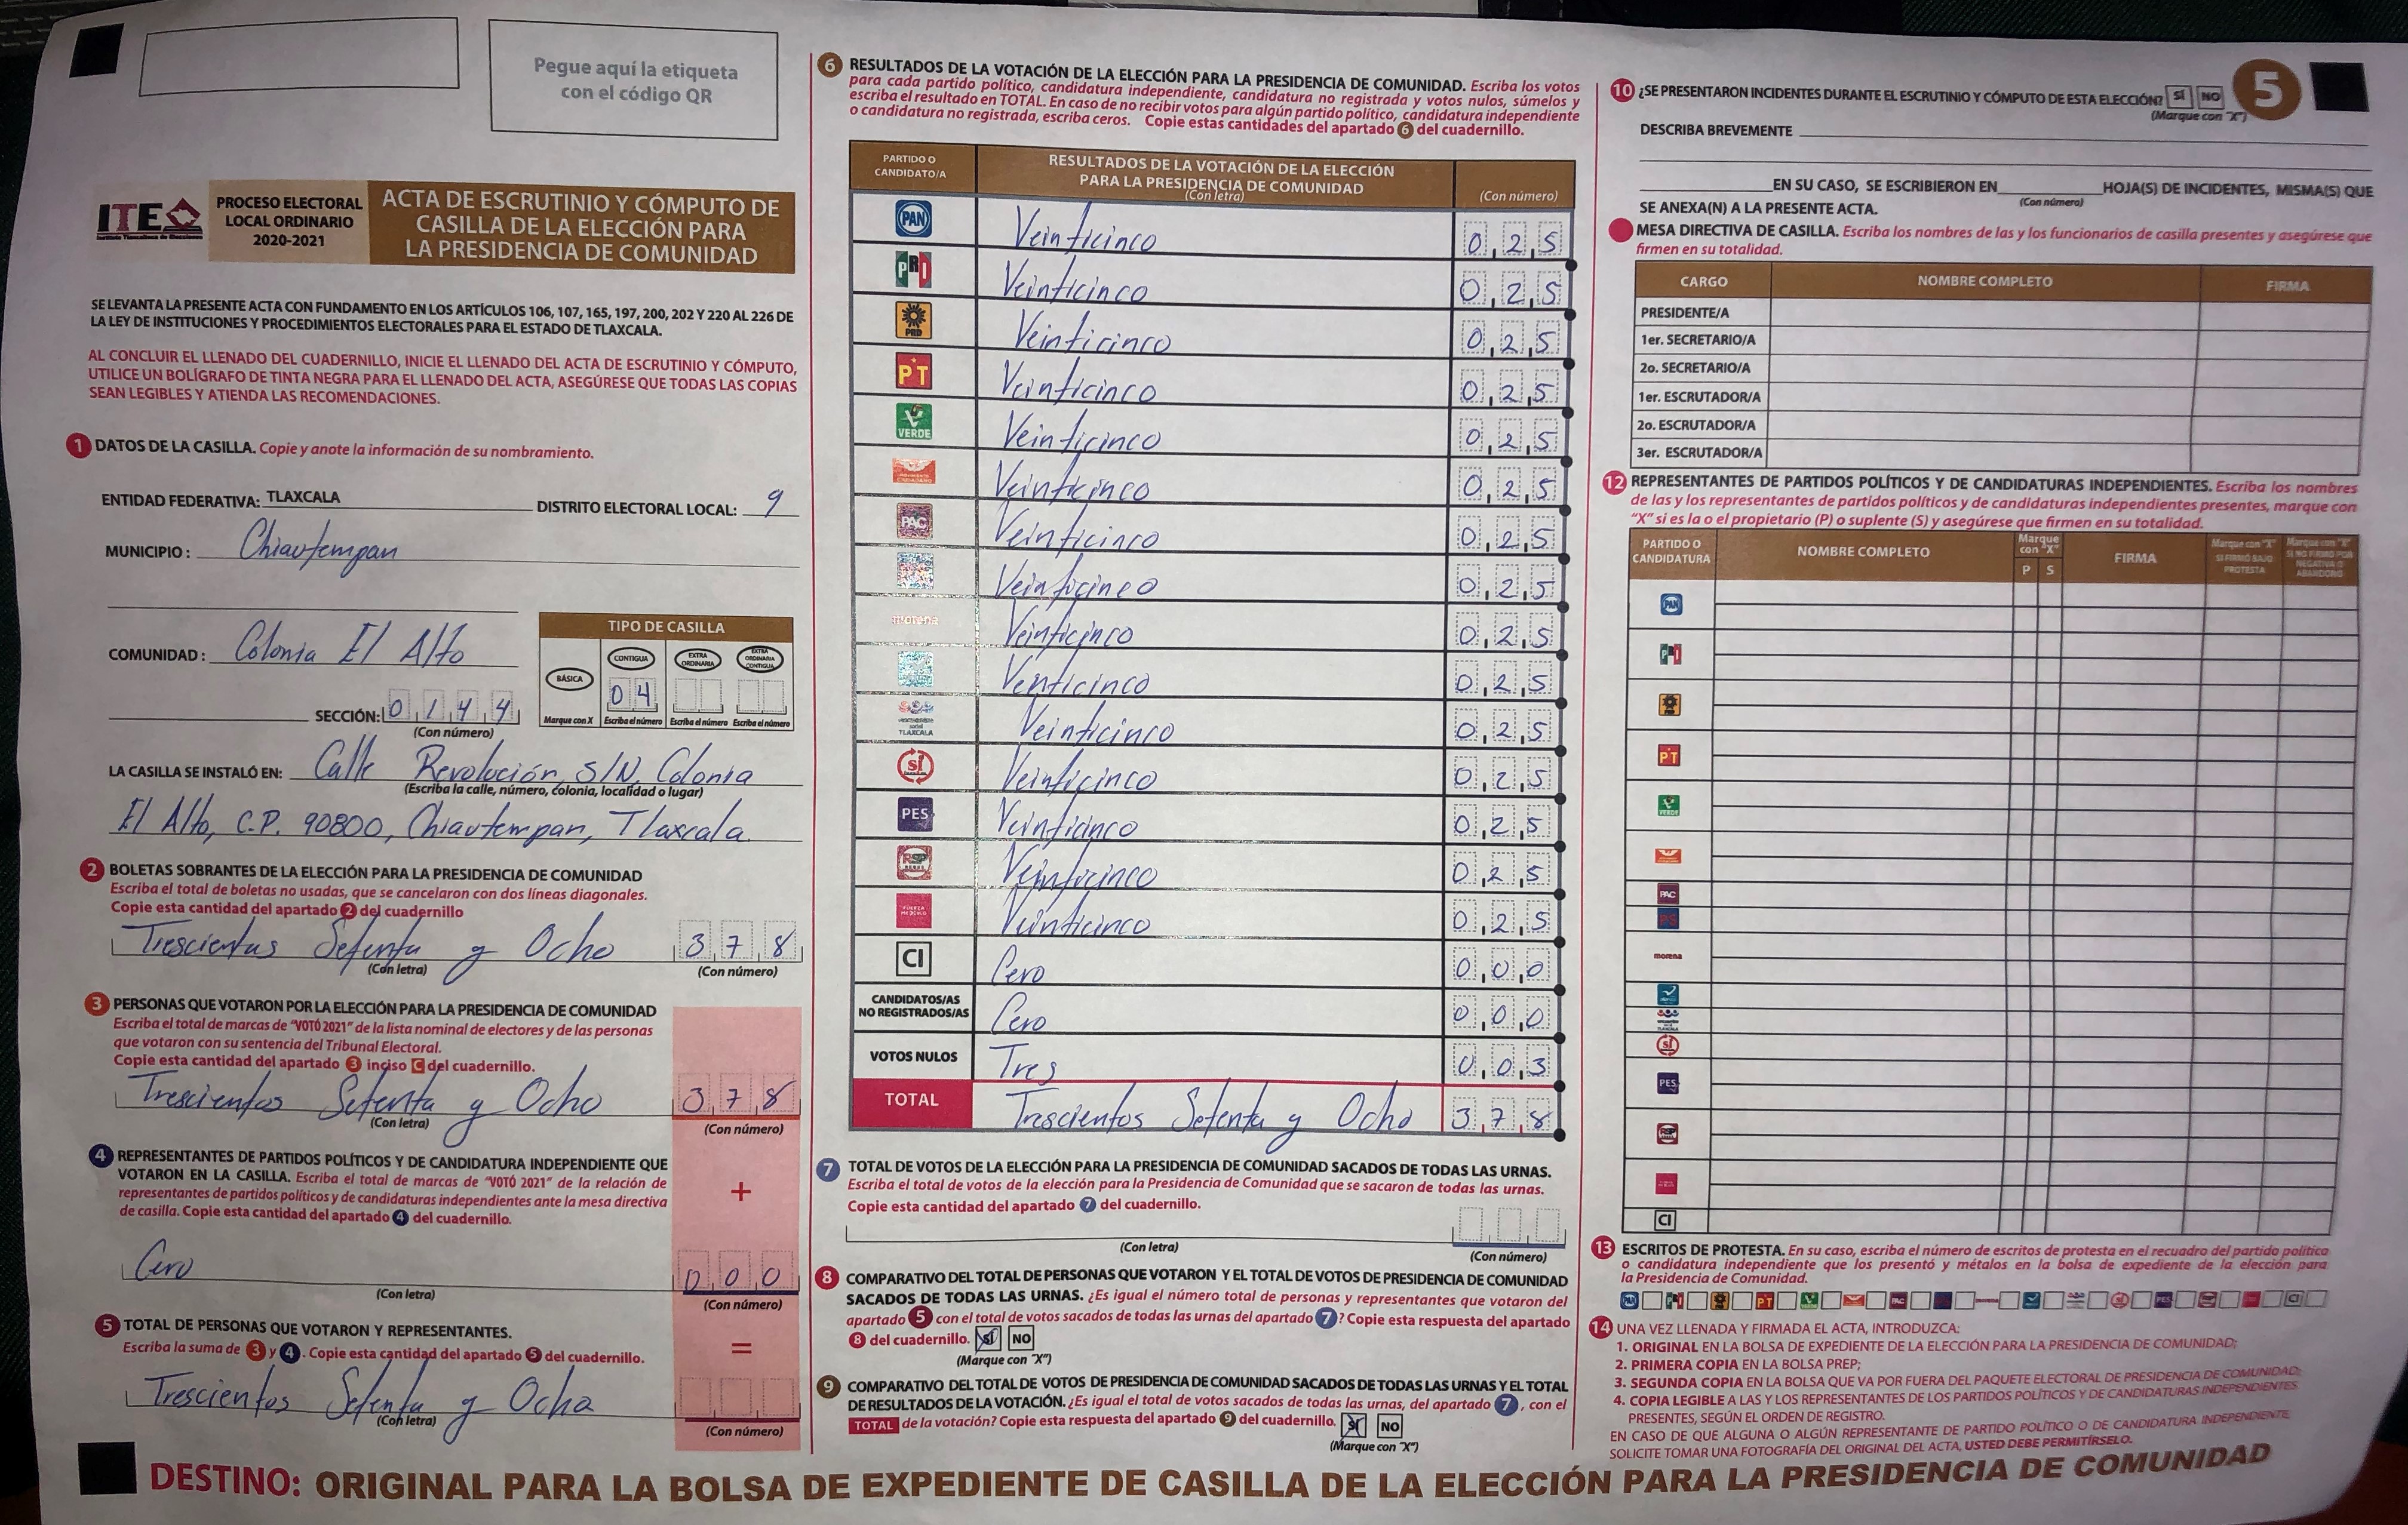 Pegue aquí la etiqueta
con el código QR
ITE
Instituto Tlaxcalteca de Elecciones
PROCESO ELECTORAL
LOCAL ORDINARIO
2020-2021
ACTA DE ESCRUTINIO Y CÓMPUTO DE
CASILLA DE LA ELECCIÓN PARA
LA PRESIDENCIA DE COMUNIDAD
SE LEVANTA LA PRESENTE ACTA CON FUNDAMENTO EN LOS ARTÍCULOS 106, 107, 165, 197, 200, 202 Y 220 AL 226 DE
LA LEY DE INSTITUCIONES Y PROCEDIMIENTOS ELECTORALES PARA EL ESTADO DE TLAXCALA.
AL CONCLUIR EL LLENADO DEL CUADERNILLO, INICIE EL LLENADO DEL ACTA DE ESCRUTINIO Y CÓMPUTO,
UTILICE UN BOLÍGRAFO DE TINTA NEGRA PARA EL LLENADO DEL ACTA, ASEGÚRESE QUE TODAS LAS COPIAS
SEAN LEGIBLES Y ATIENDA LAS RECOMENDACIONES.
1 DATOS DE LA CASILLA. Copie y anote la información de su nombramiento.
ENTIDAD FEDERATIVA: TLAXCALA DISTRITO ELECTORAL LOCAL: 9
MUNICIPIO : Chiautempan
COMUNIDAD : Colonia El Alto
TIPO DE CASILLA
BÁSICA CONTIGUA EXTRA ORDINARIA EXTRA ORDINARIA CONTIGUA
04
Marque con X Escriba el número Escriba el número Escriba el número
SECCIÓN: 0 1 4 4
(Con número)
LA CASILLA SE INSTALÓ EN: Calle Revolución, S/N, Colonia
(Escriba la calle, número, colonia, localidad o lugar)
El Alto, C.P. 90800, Chiautempan, Tlaxcala.
2 BOLETAS SOBRANTES DE LA ELECCIÓN PARA LA PRESIDENCIA DE COMUNIDAD
Escriba el total de boletas no usadas, que se cancelaron con dos líneas diagonales.
Copie esta cantidad del apartado 2 del cuadernillo
Trescientas Setenta y Ocho 3 7 8
(Con letra) (Con número)
3 PERSONAS QUE VOTARON POR LA ELECCIÓN PARA LA PRESIDENCIA DE COMUNIDAD
Escriba el total de marcas de "VOTÓ 2021" de la lista nominal de electores y de las personas
que votaron con su sentencia del Tribunal Electoral.
Copie esta cantidad del apartado 3 inciso C del cuadernillo.
Trescientos Setenta y Ocho 3 7 8
(Con letra) (Con número)
4 REPRESENTANTES DE PARTIDOS POLÍTICOS Y DE CANDIDATURA INDEPENDIENTE QUE
VOTARON EN LA CASILLA. Escriba el total de marcas de "VOTÓ 2021" de la relación de
representantes de partidos políticos y de candidaturas independientes ante la mesa directiva
de casilla. Copie esta cantidad del apartado 4 del cuadernillo.
+
Cero 0 0 0
(Con letra) (Con número)
5 TOTAL DE PERSONAS QUE VOTARON Y REPRESENTANTES.
Escriba la suma de 3 y 4. Copie esta cantidad del apartado 5 del cuadernillo.
=
Trescientos Setenta y Ocho
(Con letra) (Con número)
6 RESULTADOS DE LA VOTACIÓN DE LA ELECCIÓN PARA LA PRESIDENCIA DE COMUNIDAD. Escriba los votos
para cada partido político, candidatura independiente, candidatura no registrada y votos nulos, súmelos y
escriba el resultado en TOTAL. En caso de no recibir votos para algún partido político, candidatura independiente
o candidatura no registrada, escriba ceros. Copie estas cantidades del apartado 6 del cuadernillo.
PARTIDO O CANDIDATO/A RESULTADOS DE LA VOTACIÓN DE LA ELECCIÓN PARA LA PRESIDENCIA DE COMUNIDAD (Con letra) (Con número)
PAN Veinticinco 0 2 5
PRI Veinticinco 0 2 5
PRD Veinticinco 0 2 5
PT Veinticinco 0 2 5
VERDE Veinticinco 0 2 5
Veinticinco 0 2 5
PAC Veinticinco 0 2 5
Veinticinco 0 2 5
morena Veinticinco 0 2 5
Venticinco 0 2 5
TLAXCALA Veinticinco 0 2 5
sí Veinticinco 0 2 5
PES Veinticinco 0 2 5
RSP Veinticinco 0 2 5
Veinticinco 0 2 5
CI Cero 0 0 0
CANDIDATOS/AS NO REGISTRADOS/AS Cero 0 0 0
VOTOS NULOS Tres 0 0 3
TOTAL Trescientos Setenta y Ocho 3 7 8
7 TOTAL DE VOTOS DE LA ELECCIÓN PARA LA PRESIDENCIA DE COMUNIDAD SACADOS DE TODAS LAS URNAS.
Escriba el total de votos de la elección para la Presidencia de Comunidad que se sacaron de todas las urnas.
Copie esta cantidad del apartado 7 del cuadernillo.
(Con letra) (Con número)
8 COMPARATIVO DEL TOTAL DE PERSONAS QUE VOTARON Y EL TOTAL DE VOTOS DE PRESIDENCIA DE COMUNIDAD
SACADOS DE TODAS LAS URNAS. ¿Es igual el número total de personas y representantes que votaron del
apartado 5 con el total de votos sacados de todas las urnas del apartado 7? Copie esta respuesta del apartado
8 del cuadernillo. SÍ NO
(Marque con "X")
9 COMPARATIVO DEL TOTAL DE VOTOS DE PRESIDENCIA DE COMUNIDAD SACADOS DE TODAS LAS URNAS Y EL TOTAL
DE RESULTADOS DE LA VOTACIÓN. ¿Es igual el total de votos sacados de todas las urnas, del apartado 7, con el
TOTAL de la votación? Copie esta respuesta del apartado 9 del cuadernillo. SÍ NO
(Marque con "X")
10 ¿SE PRESENTARON INCIDENTES DURANTE EL ESCRUTINIO Y CÓMPUTO DE ESTA ELECCIÓN? SÍ NO
(Marque con "X")
5
DESCRIBA BREVEMENTE
EN SU CASO, SE ESCRIBIERON EN HOJA(S) DE INCIDENTES, MISMA(S) QUE
(Con número)
SE ANEXA(N) A LA PRESENTE ACTA.
MESA DIRECTIVA DE CASILLA. Escriba los nombres de las y los funcionarios de casilla presentes y asegúrese que
firmen en su totalidad.
CARGO NOMBRE COMPLETO FIRMA
PRESIDENTE/A
1er. SECRETARIO/A
2o. SECRETARIO/A
1er. ESCRUTADOR/A
2o. ESCRUTADOR/A
3er. ESCRUTADOR/A
12 REPRESENTANTES DE PARTIDOS POLÍTICOS Y DE CANDIDATURAS INDEPENDIENTES. Escriba los nombres
de las y los representantes de partidos políticos y de candidaturas independientes presentes, marque con
"X" si es la o el propietario (P) o suplente (S) y asegúrese que firmen en su totalidad.
PARTIDO O CANDIDATURA NOMBRE COMPLETO Marque con "X" P S FIRMA Marque con "X" SI FIRMÓ BAJO PROTESTA Marque con "X" SI NO FIRMÓ POR NEGATIVA O ABANDONO
PAN
PRI
PRD
PT
VERDE
PAC
PS
morena
sí
PES
RSP
CI
13 ESCRITOS DE PROTESTA. En su caso, escriba el número de escritos de protesta en el recuadro del partido político
o candidatura independiente que los presentó y métalos en la bolsa de expediente de la elección para
la Presidencia de Comunidad.
14 UNA VEZ LLENADA Y FIRMADA EL ACTA, INTRODUZCA:
1. ORIGINAL EN LA BOLSA DE EXPEDIENTE DE LA ELECCIÓN PARA LA PRESIDENCIA DE COMUNIDAD;
2. PRIMERA COPIA EN LA BOLSA PREP;
3. SEGUNDA COPIA EN LA BOLSA QUE VA POR FUERA DEL PAQUETE ELECTORAL DE PRESIDENCIA DE COMUNIDAD;
4. COPIA LEGIBLE A LAS Y LOS REPRESENTANTES DE LOS PARTIDOS POLÍTICOS Y DE CANDIDATURAS INDEPENDIENTES
PRESENTES, SEGÚN EL ORDEN DE REGISTRO.
EN CASO DE QUE ALGUNA O ALGÚN REPRESENTANTE DE PARTIDO POLÍTICO O DE CANDIDATURA INDEPENDIENTE
SOLICITE TOMAR UNA FOTOGRAFÍA DEL ORIGINAL DEL ACTA, USTED DEBE PERMITÍRSELO.
DESTINO: ORIGINAL PARA LA BOLSA DE EXPEDIENTE DE CASILLA DE LA ELECCIÓN PARA LA PRESIDENCIA DE COMUNIDAD